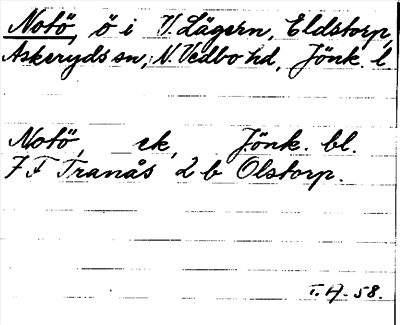 Notö, ö i V. Lägern, Eldstorp,
Askeryds sn, N. Vedbo hd, Jönk. l
Notö, ek, Jönk. bl.
7 F Tranås 2 b Olstorp.
T.H-58.